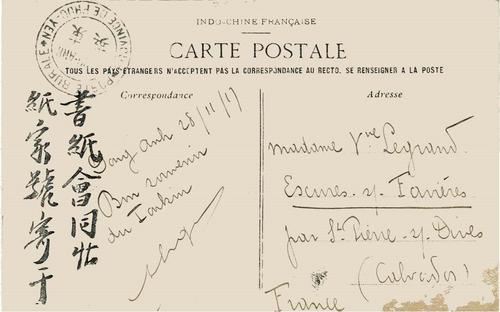 INDO-CHINE FRANÇAISE
CARTE POSTALE
TOUS LES PAYS ÉTRANGERS N'ACCEPTENT PAS LA CORRESPONDANCE AU RECTO. SE RENSEIGNER A LA POSTE
PROVINCE DE PHUC-YEN
POSTE RURALE
Correspondance
書紙會同帖
紙家號寄于
Dong Anh 28/11/17
Bon souvenir
du Tonkin
Adresse
Madame Vve Legrand
Escures s/ Favières
par St Pierre s/ Dives
(Calvados)
France